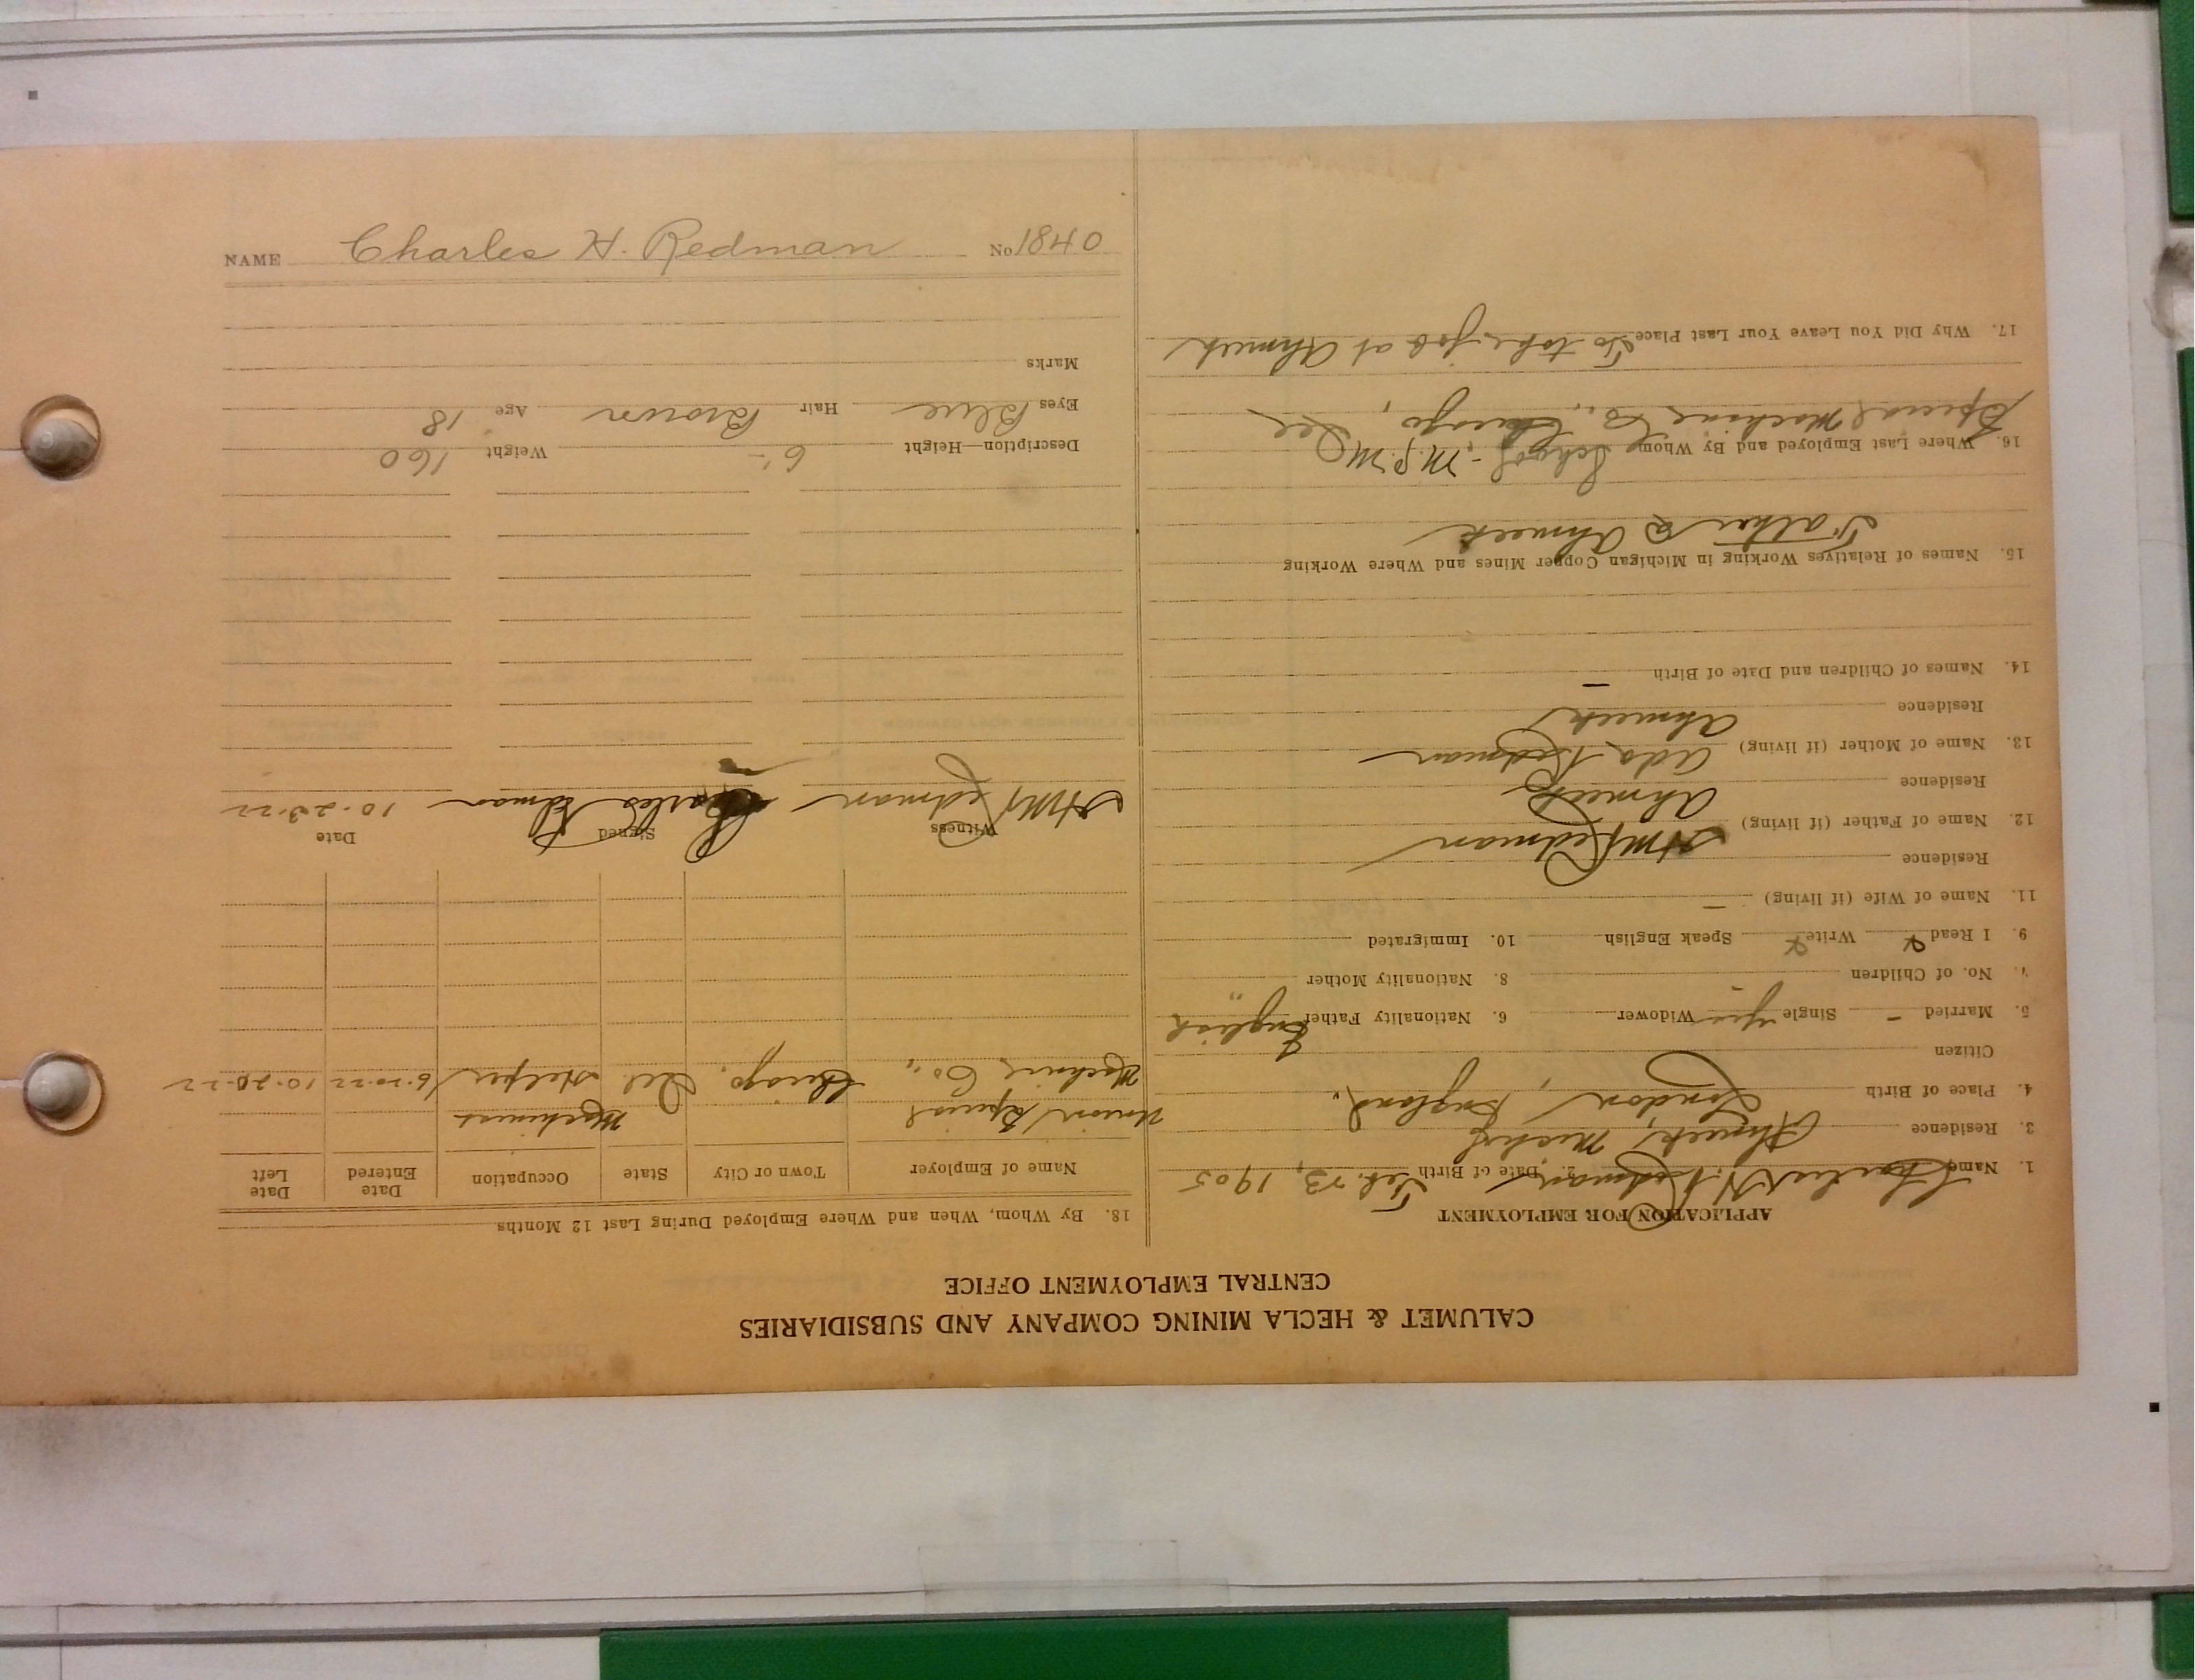 CALUMET & HECLA MINING COMPANY AND SUBSIDIARIES
CENTRAL EMPLOYMENT OFFICE
APPLICATION FOR EMPLOYMENT
1. Name Charles H. Redman 2. Date of Birth Feb. 13, 1905
3. Residence Ahmeek, Mich
4. Place of Birth London, England.
Citizen
5. Married - Single yes Widower 6. Nationality Father English
7. No. of Children - 8. Nationality Mother "
9. I Read x Write x Speak English 10. Immigrated
11. Name of Wife (if living) -
Residence
12. Name of Father (if living) HM Redman
Residence Ahmeek
13. Name of Mother (if living) Ada Redman
Residence Ahmeek
14. Names of Children and Date of Birth -
15. Names of Relatives Working in Michigan Copper Mines and Where Working
Father @ Ahmeek
16. Where Last Employed and By Whom School - M.P.M.
Special Machine Co., Chicago, Ill
17. Why Did You Leave Your Last Place To take job at Ahmeek
18. By Whom, When and Where Employed During Last 12 Months
Name of Employer Town or City State Occupation Date Entered Date Left
Union Special Machinist
Machine Co., Chicago, Ill. Helper 6-20-22 10-20-22
Witness Signed Date
HM Redman Charles Redman 10-23-22
Description—Height 6'- Weight 160
Eyes Blue Hair Brown Age 18
Marks
NAME Charles H. Redman No 1840